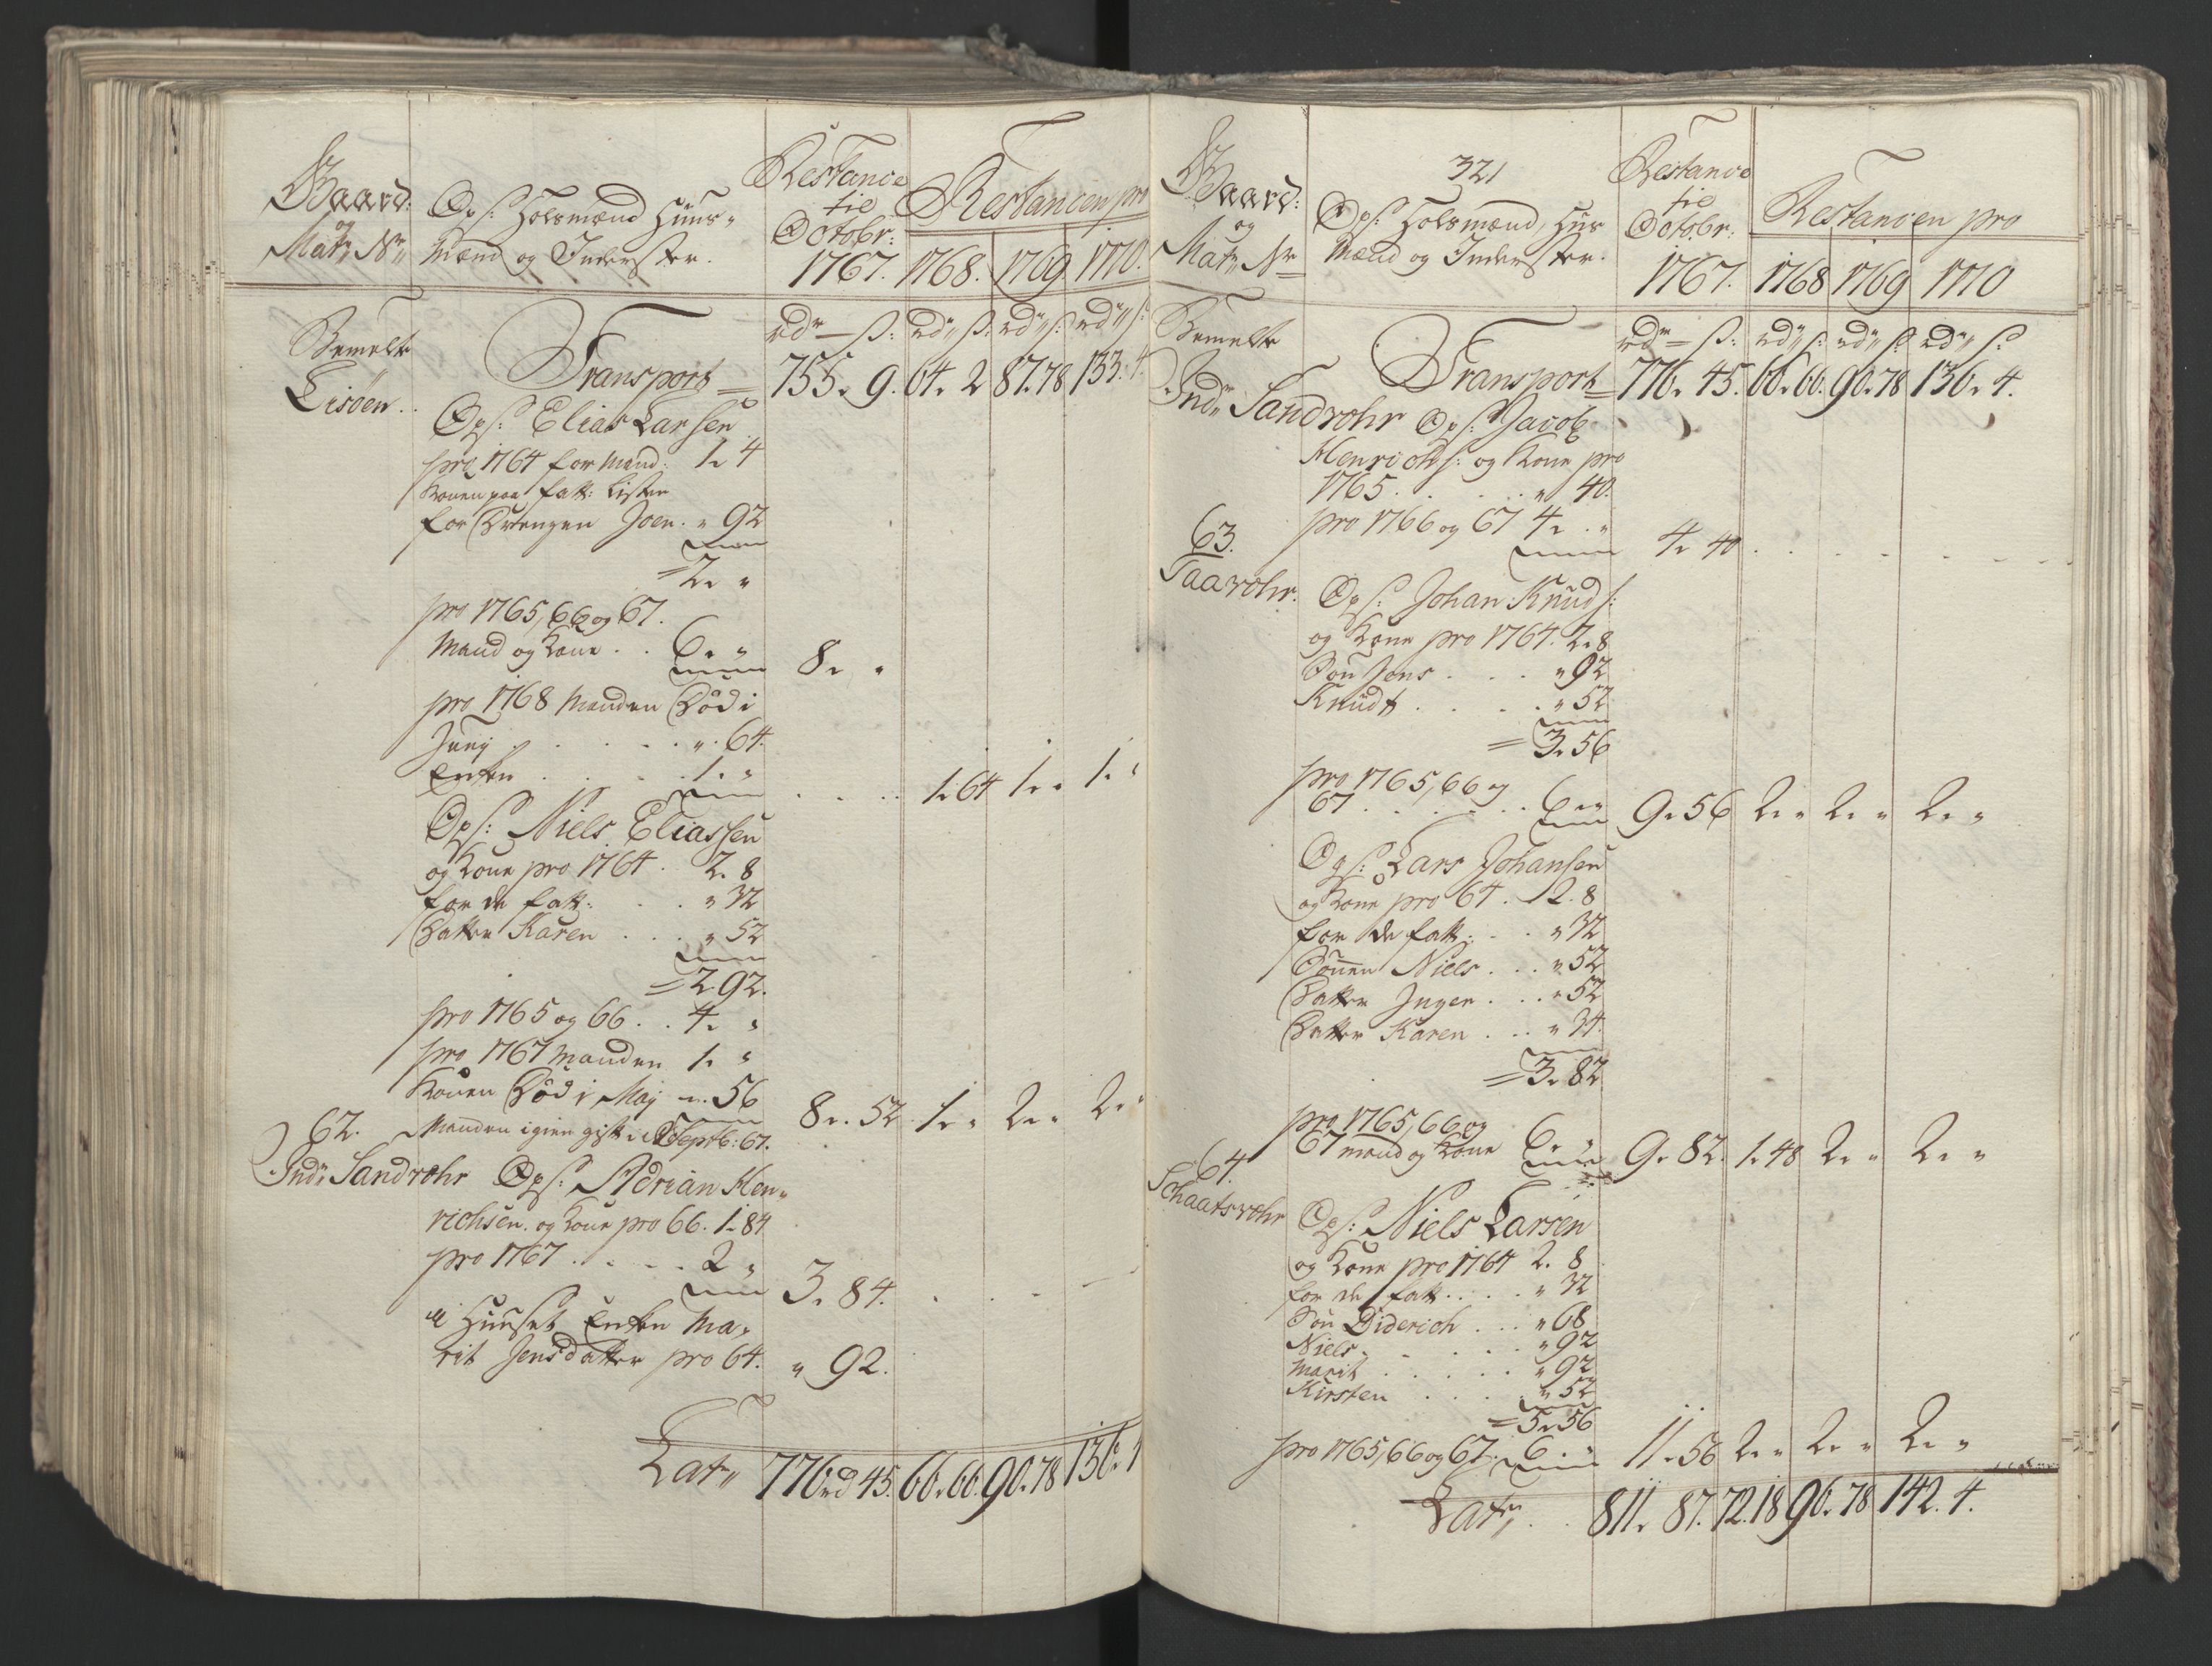 Gaard:
og
Mat: Nr:
Ops: Holsmænd Huus-
Mænd og Inderster.
Restance
til
Octobr:
1767.
Restancen pro
1768. 1769. 1770.
rdr — s: rdr s: rdr s: rdr s:
Bemelte
Lisöen.
Transport = 755. 9. 64. 2 87. 78 133. 4
Ops: Elias Larsen
pro 1764 for Mand: 1. 4
Konen paa fatt: Listen
for Drengen Joen. " 92
= 2. "
pro 1765, 66 og 67.
Mand og Kone . . 6. " 8. "
pro 1768 Manden Död i
Junj . . . . " 64.
Enken . . . . 1. " . . . 1. 64 1. " 1. "
Ops: Niels Eliassen
og Kone pro 1764 . 2. 8
for de fatt: . . " 32
Datter Karen . . . " 52
= 2. 92.
pro 1765 og 66 . . 4. "
pro 1767 Manden 1. "
Konen Död i Maj " 56 8. 52 1. " 2. " 2. "
62. Manden igien gift i Septb: 67.
Ind: Sandrohr Ops: Adrian Hen-
richsen. og Kone pro 66. 1. 84
pro 1767 . . . . 2 " 3. 84. . . .
i Huuset Enken Ma-
rit Jensdatter pro 64. " 92.
Lat: 776 rd 45. 66. 66. 90. 78 136. 4
321
Gaard:
og
Mat: Nr
Ops: Holsmænd, Huus
Mænd og Inderster.
Restance
til
Octobr:
1767.
Restancen pro
1768 1769 1770
rdr — s: rdr s: rdr s: rdr s:
Bemelte
Transport = 776. 45. 66. 66. 90. 78 136. 4.
Ind: Sandrohr Ops: Jacob
Henrichs: og Kone pro
1765 . . . . " 40.
pro 1766 og 67 4. . " 4. 40 . . . .
63.
Taarohr.
Ops: Johan Knuds:
og Kone pro 1764. 2. 8
Sön Jens . . . " 92
Knudt . . . . " 52
= 3. 56
pro 1765, 66 og
67 . . . . . 6. " 9. 56 2. " 2. " 2. "
Ops: Lars Johansen
og Kone pro 64 . 2. 8
for de fatt: . . " 32
Sönnen Niels . . . " 52
Datter Inger . . . " 52
Datter Karen . . . " 34.
= 3. 82
pro 1765, 66 og
67 mand og Kone 6. " 9. 82. 1. 48 2. " 2. "
64.
Schaatsrohr
Ops: Niels Larsen
og Kone pro 1764 2. 8
for de fatt . . . . " 32
Sön Diderich . . . " 68
Niels . . . . . " 92
Marit . . . . . " 92
Kirsten . . . . " 52
= 5. 56
pro 1765, 66 og 67. 6. " 11. 56 2. " 2. " 2. "
Lat: . . 811. 87. 72. 18 96. 78 142. 4.